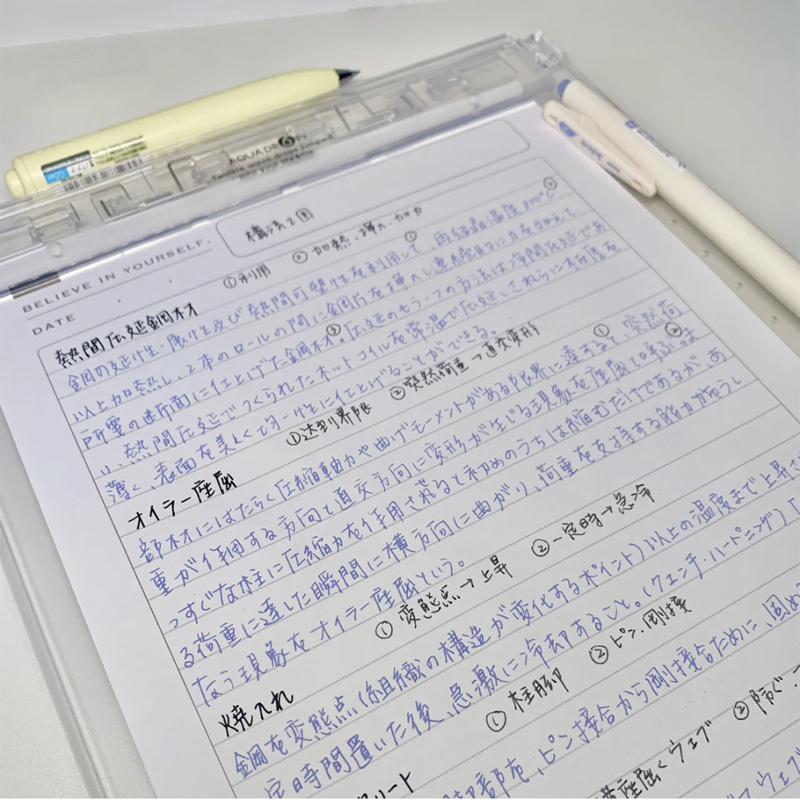 AQUADROPs
BELIEVE IN YOURSELF.
DATE
構法2回
①利用 ②加熱,挿入・加力
熱間圧延鋼材
鋼の延性・展性及び熱間可塑性を利用して、再結晶温度800℃
以上加熱し、2本のロールの間に鋼片を挿入し連続的に力を加えて
所要の断面に仕上げた鋼材。圧延のもう一つの方法は冷間圧延であ
り、熱間圧延でつくられたホットコイルを常温で圧延しさらに板厚を
薄く、表面を美しく均一性に仕上げることができる。
①達到界限 ②突然荷重→直交変形
オイラー座屈
部材にはたらく圧縮軸力や曲げモーメントがある限界に達すると、突然荷
重が作用する方向と直交方向に変形が生じる現象を座屈と呼ぶ。ま
っすぐな柱に圧縮力を作用されると初めのうちは縮むだけであるが、あ
る荷重に達した瞬間に横方向に曲がり、荷重を支持する能力がなうし
なう現象をオイラー座屈という。
①変態点→上昇 ②一定時→急冷
焼入れ
鋼を変態点(組織の構造が変化するポイント)以上の温度まで上昇さ
定時間置いた後、急激に冷却すること。(クエンチ・ハードニング)
①柱脚 ②ピン,剛接
リート
脚部を、ピン接合から剛接合ために、固め
座屈くウェブ ②防ぐ